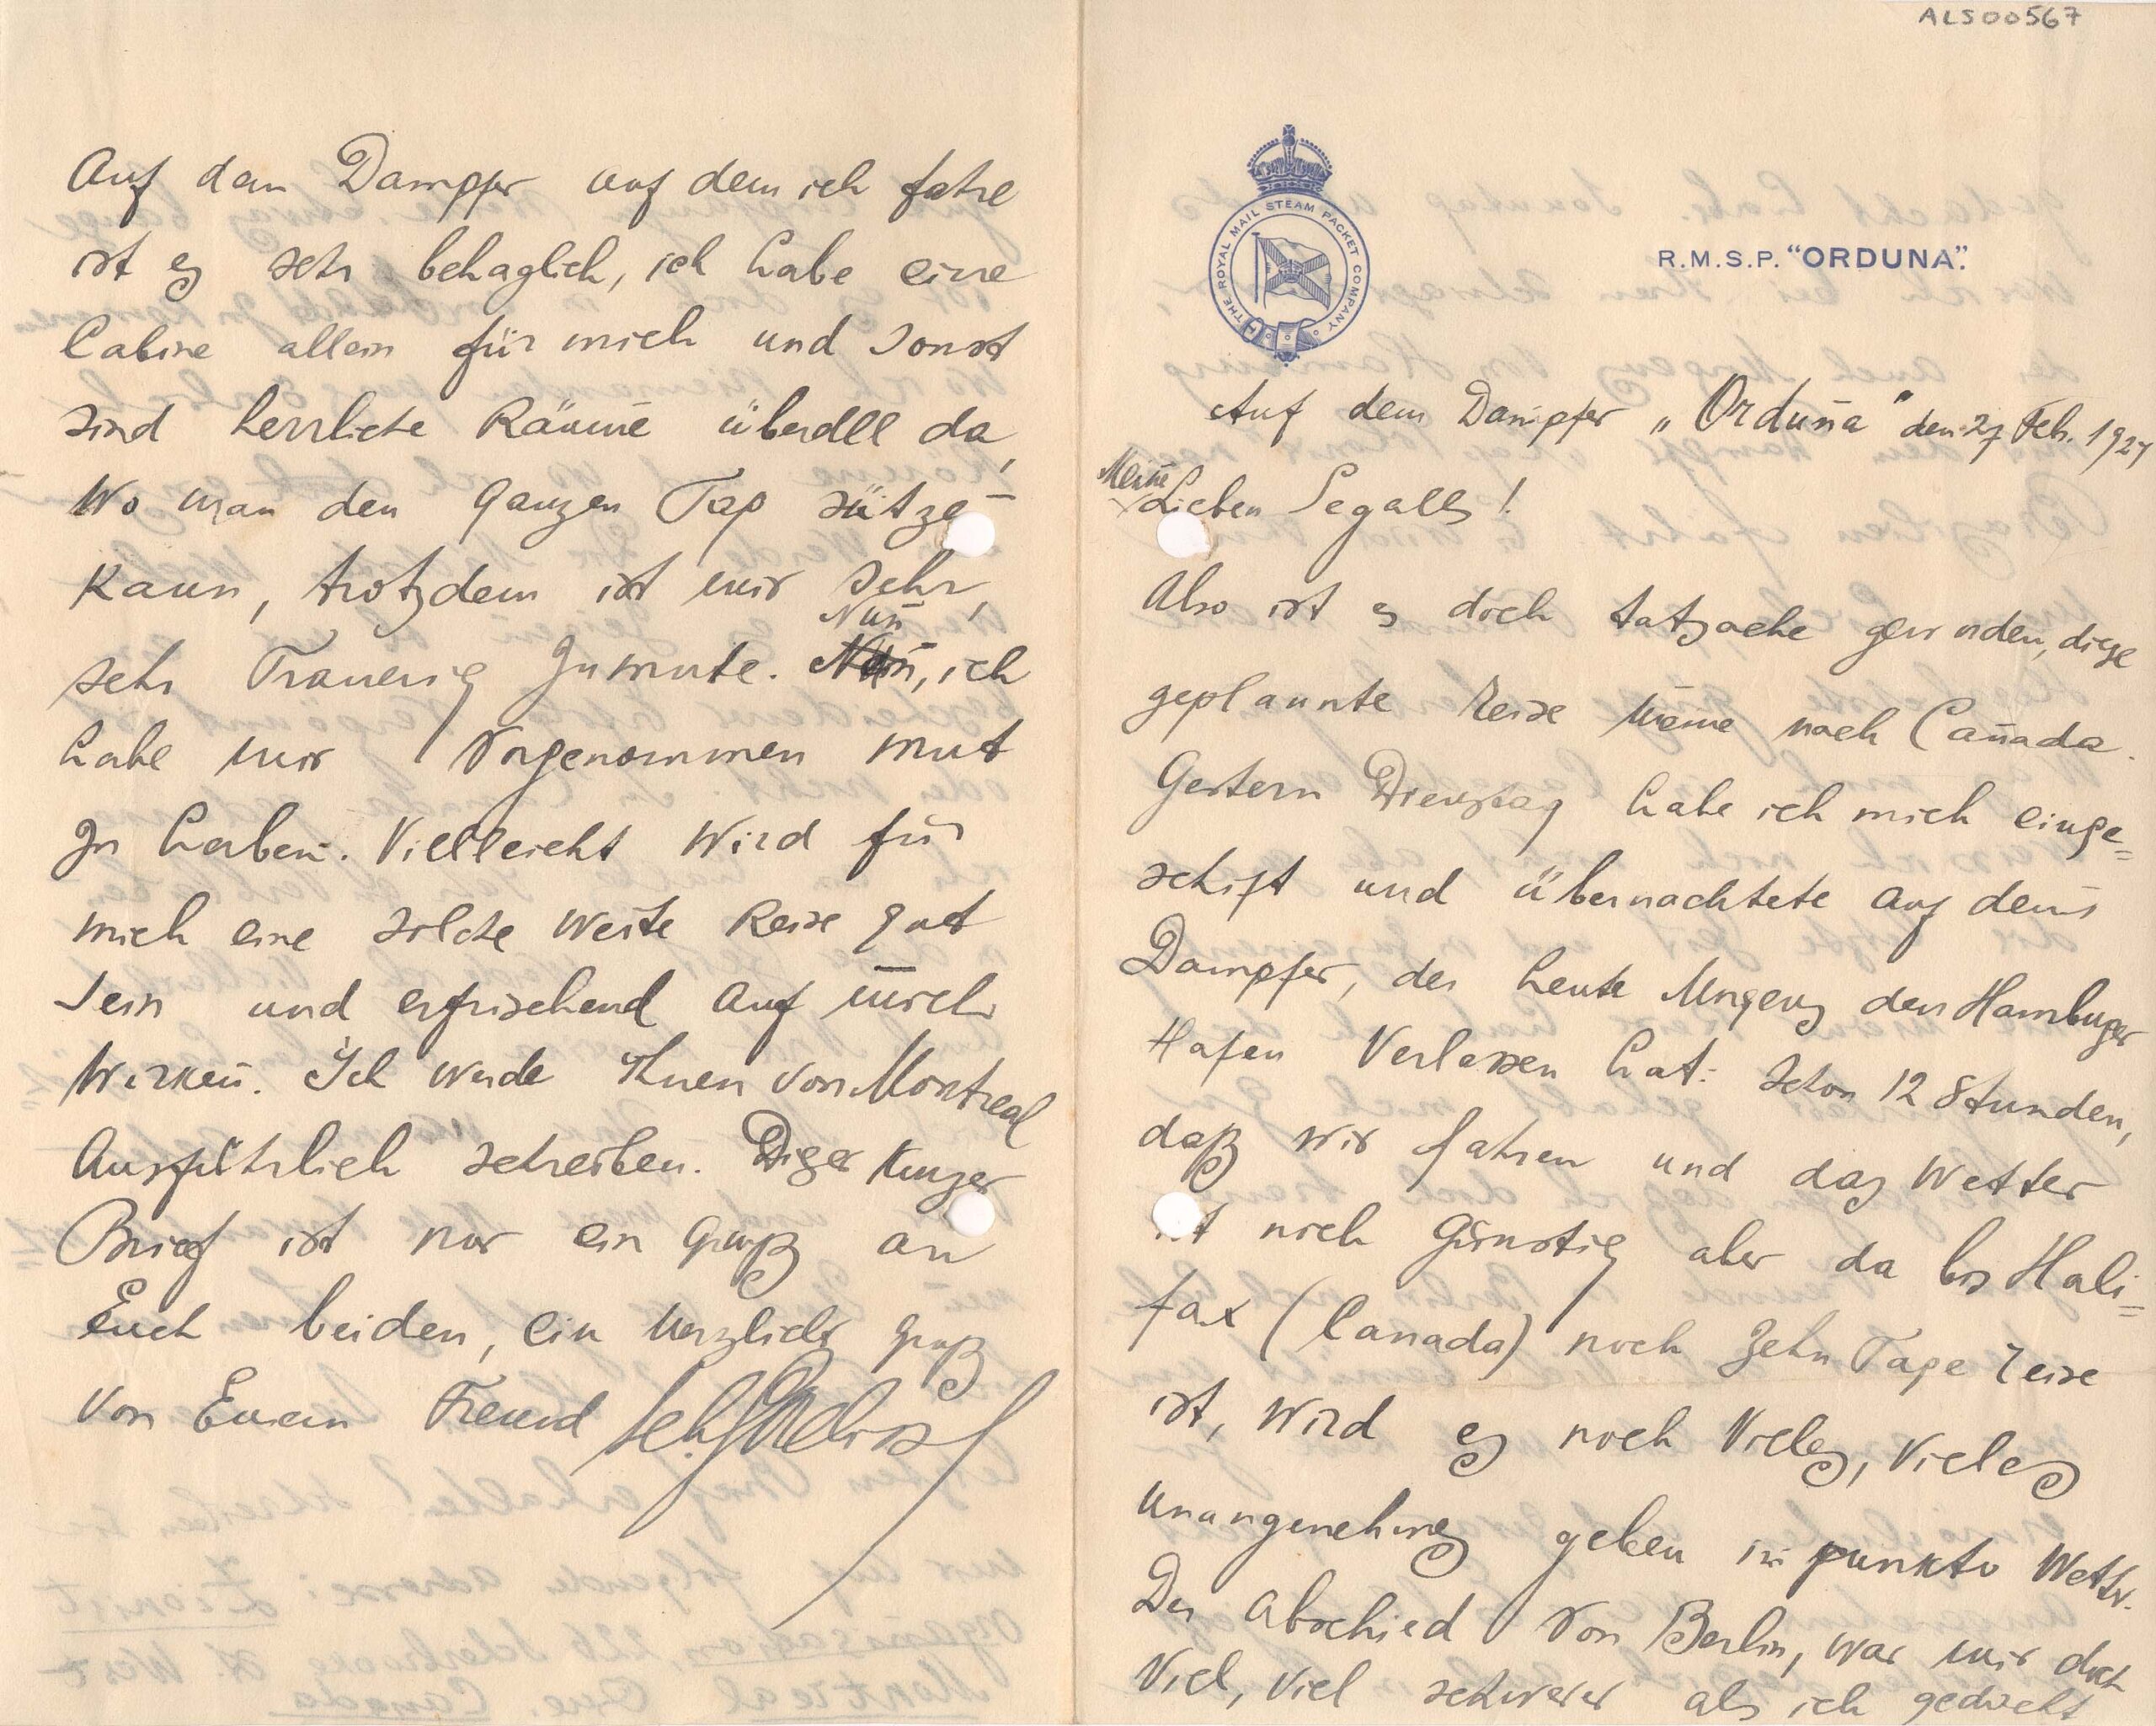 ALS00567
THE ROYAL MAIL STEAM PACKET COMPANY
R.M.S.P. "ORDUNA".
Auf dem Dampfer „Orduna" den 27 Feb. 1927
Meine
Lieben Segalls!
Also ist es doch tatsache geworden, diese
geplannte Reise meine nach Canada.
Gestern Dienstag habe ich mich einge=
schift und übernachtete auf dem
Dampfer, der heute Morgens den Hamburger
Hafen Verlassen hat: schon 12 Stunden,
daß wir fahren und das Wetter
ist noch günstig aber da bis Hali=
fax (Canada) noch zehn Tage reise
ist, wird es noch Vieles, Vieles
unangenehmes geben in punkto Wetter.
Der Abschied von Berlin, war mir doch
Viel, viel schwerer als ich gedacht
Auf dem Dampfer auf dem ich fahre
ist es sehr behaglich, ich habe eine
Cabine allein für mich und sonst
sind herrliche Räume überall da,
Wo man den ganzen Tag sütze-
kann, trotzdem ist mir sehr,
Nun
sehr Trauerig zumute. , ich
habe mir Vorgenommen mut
zu haben. Vielleicht wird für
mich eine solche weite Reise gut
sein und erfrischend auf mich
wirken. Ich werde Ihnen von Montreal
Ausführlich schreiben. Dieser kurzer
Brief ist nur ein gruß an
Euch beiden, ein herzlicher gruß
von Eurem Freund